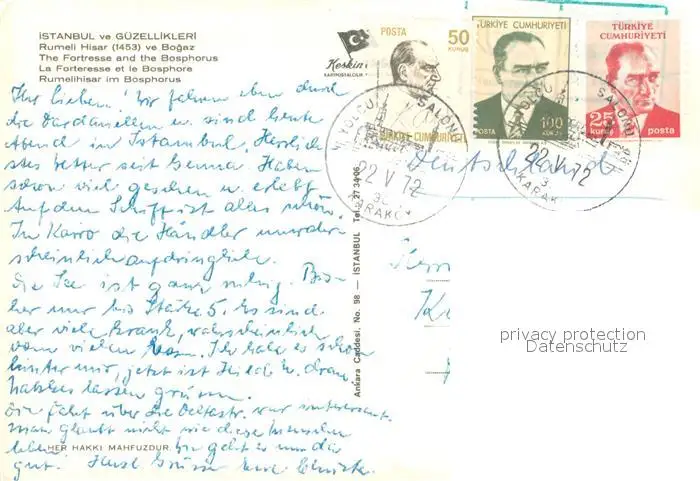 İSTANBUL ve GÜZELLİKLERİ
Rumeli Hisar (1453) ve Boğaz
The Fortresse and the Bosphorus
La Forteresse et le Bosphore
Rumelihisar im Bosphorus
Keskin
KARTPOSTALCILIK
POSTA
50
KURUŞ
TÜRKİYE CUMHURİYETİ
TÜRKİYE CUMHURİYETİ
POSTA
100
KURUŞ
TÜRKİYE
CUMHURİYETİ
25
kuruş
posta
YOLCU SALONU
22 V 72
KARAKÖY
YOLCU SALONU
22 V 72
KARAKÖY
Deutschland
Ihr Lieben! Wir fahren eben durch
die Dardanellen u. sind heute
Abend in Istanbul. Herrlich
stes Wetter seit Genua. Haben
schon viel gesehen u. erlebt
Auf dem Schiff ist alles schön.
In die Händler
scheinlich aufdringlich.
Die See ist ganz ruhig. Bis
her nur bis Stärke 5. Es sind
aber viele krank, wahrscheinlich
vom vielen Ich habe es schon
hinter mir, jetzt ist dran.
lassen grüssen.
Die Fahrt über die war interessant.
Man glaubt nicht wie diese Menschen
leben. geht es uns
gut. Grüsse Eure
HER HAKKI MAHFUZDUR
Ankara Caddesi. No. 98 — İSTANBUL Tel. 27 34 06
privacy protection
Datenschutz